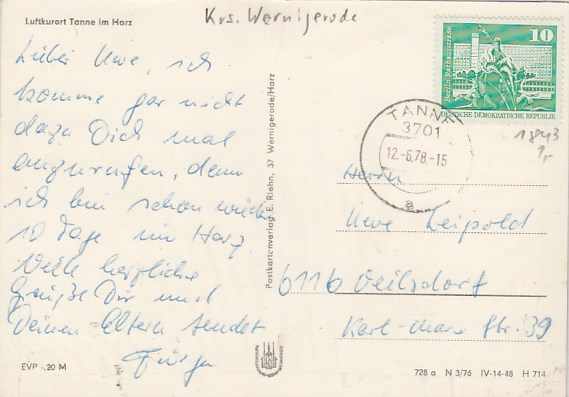 Luftkurort Tanne im Harz
Krs. Wernigerode
Lieber Uwe, ich
komme gar nicht
dazu Dich mal
anzurufen, denn
ich bin schon wieder
10 Tage im Harz.
Viele herzliche
Grüße Dir und
Deinen Eltern sendet
Jürgen
EVP -.20 M
Postkartenverlag E. Riehn, 37 Wernigerode/Harz
10
DEUTSCHE DEMOKRATISCHE REPUBLIK
TANNE
3701
12.-6.78.-15
a
1843
1,-
Herrn
Uwe Leipold
6116 Veilsdorf
Karl-Marx Str. 39
728 a N 3/76 IV-14-48 H 714